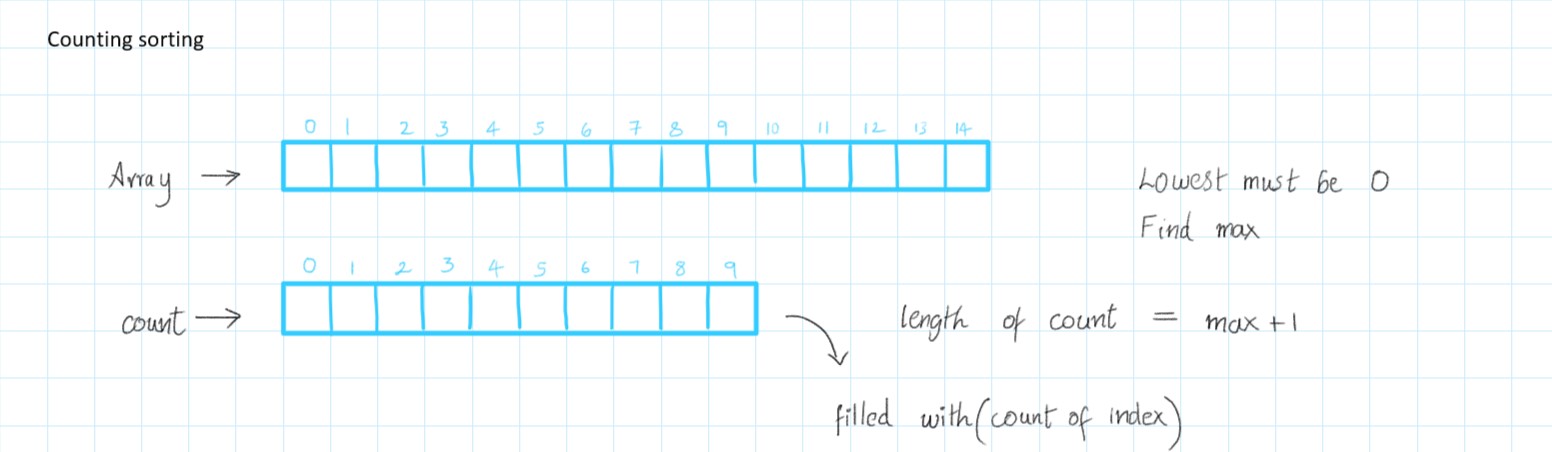 Counting sorting
0 1 2 3 4 5 6 7 8 9 10 11 12 13 14
Array →
Lowest must be 0
Find max
0 1 2 3 4 5 6 7 8 9
count →
length of count = max +1
filled with (count of index)